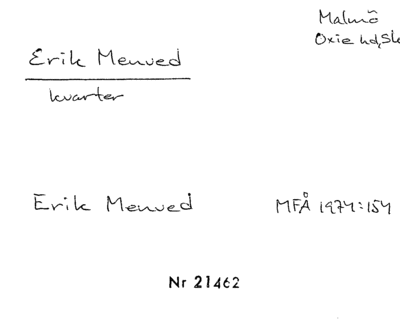 Malmö
Oxie hd, Sk
Erik Menved
kvarter
Erik Menved MFÅ 1974:154
Nr 21462